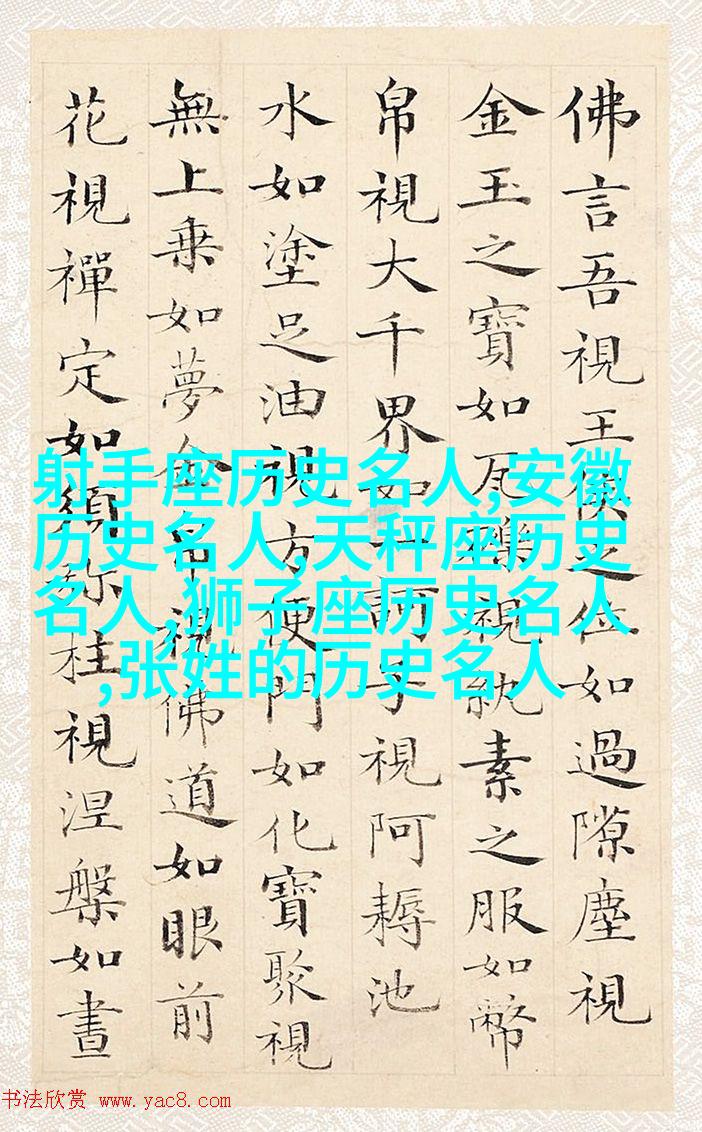 佛言吾視王侯之位如過隙塵視
金玉之寶如瓦礫視紈素之服如幣
帛視大千界如一訶子視阿耨池
水如塗足油視方便門如化寶聚視
無上乗如夢金帛視佛道如眼前
花視禪定如須弥柱視涅槃如晝
射手座历史名人,安徽
历史名人,天秤座历史
名人,狮子座历史名人
,张姓的历史名人
书法欣赏 www.yac8.com